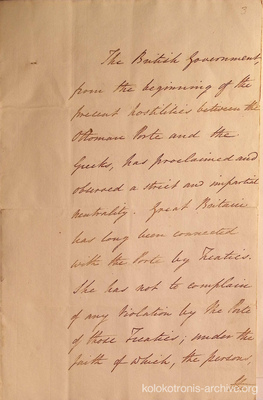 3
The British Government,
from the beginning of the
present hostilities between the
Ottoman Porte and the
Greeks, has proclaimed and
observed a strict and impartial
neutrality. Great Britain
has long been connected
with the Porte by Treaties.
She has not to complain
of any Violation by the Porte
of those Treaties; under the
faith of which, the persons,
kolokotronis-archive.org